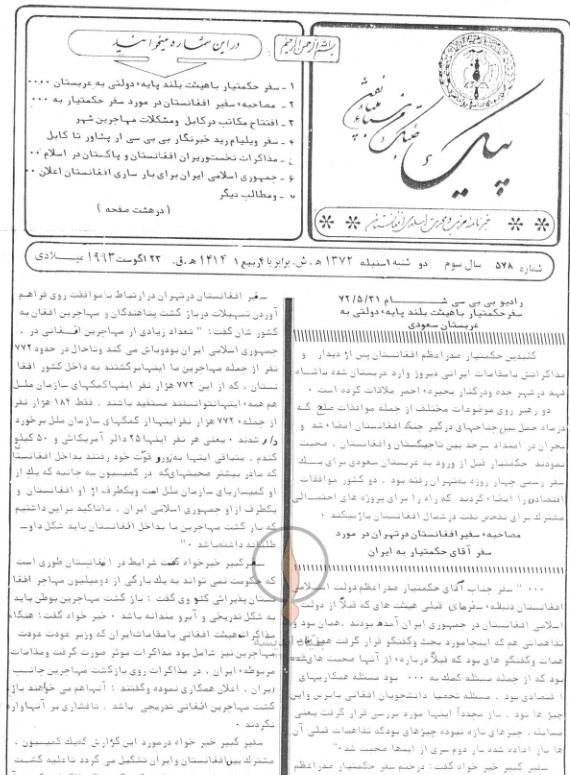 بسم الله الرحمن الرحیم
در این شماره میخوانید
۱ - سفر حکمتیار با هیئت بلند پایهء دولتی به عربستان ۰۰۰۰
۲ - مصاحبهء سفیر افغانستان در مورد سفر حکمتیار به ۰۰۰
۳ - افتتاح مکاتب در کابل ومشکلات مهاجرین شهر
۴ - سفر ویلیام رید خبرنگار بی بی سی از پشاور تا کابل
۵ - مذاکرات نخست وزیران افغانستان و پاکستان در اسلام ۰۰
۶ - جمهوری اسلامی ایران برای باز سازی افغانستان اعلان ۰۰
۷ - ومطالب دیگر
( در هشت صفحه )
پیک
شماره ۵۷۸ سال سوم دو شنبه ۱سنبله ۱۳۷۲ ه . ش . برابر با ۴ ربیع ۱ ۱۴۱۴ ه . ق . ۲۳ اگوست ۱۹۹۳ میلادی
رادیو بی بی سی شام ۷۲/۵/۳۱
سفر حکمتیار با هیئت بلند پایهء دولتی به
عربستان سعودی
گلبدین حکمتیار صدراعظم افغانستان پس از دیدار و
مذاکراتش با مقامات ایرانی دیروز وارد عربستان شده با شاه
فهد در شهر جده ودر کنار بحیرهء احمر ملاقات کرده است ۰
دو رهبر روی موضوعات مختلف از جمله موافقات صلح که
در ماه حمل بین جناحهای درگیر جنگ افغانستان امضاء شد و
بحران در امتداد سرحد بین تاجیکستان وافغانستان ، صحبت
نمودند حکمتیار قبل از ورود به عربستان سعودی برای یک
سفر رسمی چهار روزه به تهران رفته بود . دو کشور موافقات
اقتصادی را امضاء کردند که راه را برای پروژه های احتمالی
مشترک برای تفحص نفت در شمال افغانستان باز میکند ۰
مصاحبهء سفیر افغانستان در تهران در مورد
سفر آقای حکمتیار به ایران
۰۰۰ " سفر جناب آقای حکمتیار صدراعظم دولت اسلامی
افغانستان دنبالهء سفرهای قبلی هیئت های که قبلاً از دولت
اسلامی افغانستان در جمهوری ایران آمده بودند ، همان بود و
تفاهماتی هم که اینجا مورد بحث وگفتگو قرار گرفت همان
همات وگفتگو های بود که قبلاً دربارهء از آنها صحبت های شده
بود که از جمله مسئله کمک به ۰۰۰ بود مسئله همکاریهای
اقتصادی بود . مسئله تحصیل دانشجویان افغانی با بورس واین
چیز ها بود . باز مجدداً اینها مورد بررسی قرار گرفت یعنی
مسایله ، چیزهای تازه نبوده چیزهای بود که تفاهمات قبلی آن
ها باز اعاده شده بار دوم سری از اینها صحبت شد ۰ "
سفیر کبیر خیرخواه گفت : در ختم سفر حکمتیار صدراعظم
سفیر افغانستان در تهران در ارتباط با موافقت روی فراهم
آوردن تسهیلات در باز گشت پناهندگان و مهاجرین افغان به
کشور شان گفت : " تعداد زیادی از مهاجرین افغانی در .
جمهوری اسلامی ایران بود وباش می کند وتا حال در حدود ۷۷۲
نفر از جمله مهاجرین ما اینها برگشتند به داخل کشور افغا
نستان ، که از این ۷۷۲ هزار نفر اینها کمکهای سازمان ملل
هم همهء اینها نتوانستند مستفید باشند . فقط ۱۸۲ هزار نفر
از جملهء ۷۷۲ هزار نفر اینها از کمکهای سازمان ملل برخورد
دار شدند ۰ یعنی هر نفر اینها ۲۵ دالر آمریکائی و ۵۰ کیلو
گندم . متباقی اینها به زور و قوت خود رفتند به داخل افغانستا
که مادر بیشتر صحبتهای که در کمیسیون سه جانبه که یک از
او کمیساریای سازمان ملل است ویکطرف از او افغانستان و
یکطرف از او جمهوری اسلامی ایران . ما تاکید براین داشتیم
که باز گشت مهاجرین ما به داخل افغانستان باید شکل داو-
طلبانه داشته باشد ۰ "
سفیر کبیر خیر خواه گفت شرایط در افغانستان طوری است
که حکومت نمی تواند به یک بارگی از دو میلیون مهاجر افغا
ستان پذیرائی کند وی گفت : باز گشت مهاجرین بوطن باید
به شکل تدریجی و آبرو مندانه باشد ۰ خیر خواه گفت : هنگام
مذاکرات هیئت افغانی با مقامات ایران که وزیر عودت عودت
مهاجرین نیز شامل بود مذاکرات موثر صورت گرفت ومقامات
مربوطهء ایران ، در مذاکرات روی باز گشت مهاجرین جانب
ایران ، اعلان همکاری نموده وگفتند : آنها هم می خواهند باز
گشت مهاجرین افغانی تدریجی باشد . تا فشاری بر آنها وارد
نگردند ۰
سفیر کبیر خیر خواه در مورد این گزارش که یک کمیسیون .
مشترک بین افغانستان وایران تشکیل می گردد تا علیه کشت